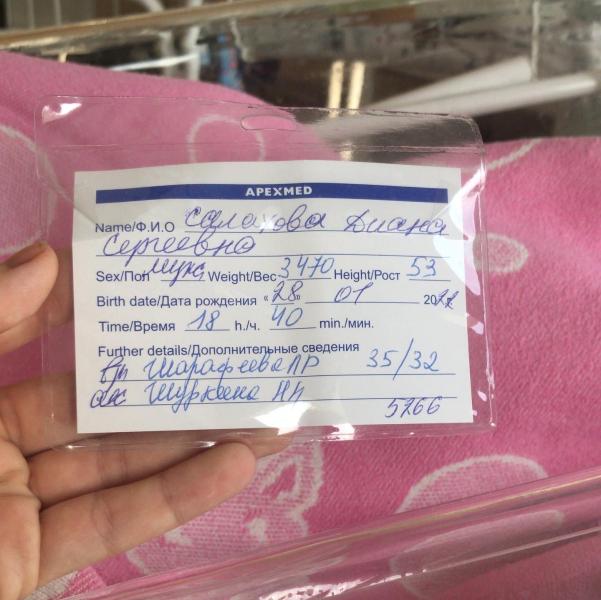 APEXMED
Name/Ф.И.О Салахова Диана
Сергеевна
Sex/Пол муж Weight/Вес 3470 Height/Рост 53
Birth date/Дата рождения «28» 01 2022
Time/Время 18 h./ч. 40 min./мин.
Further details/Дополнительные сведения
вр Шарафеева ЛР 35/32
акс Шуркина НИ
5266